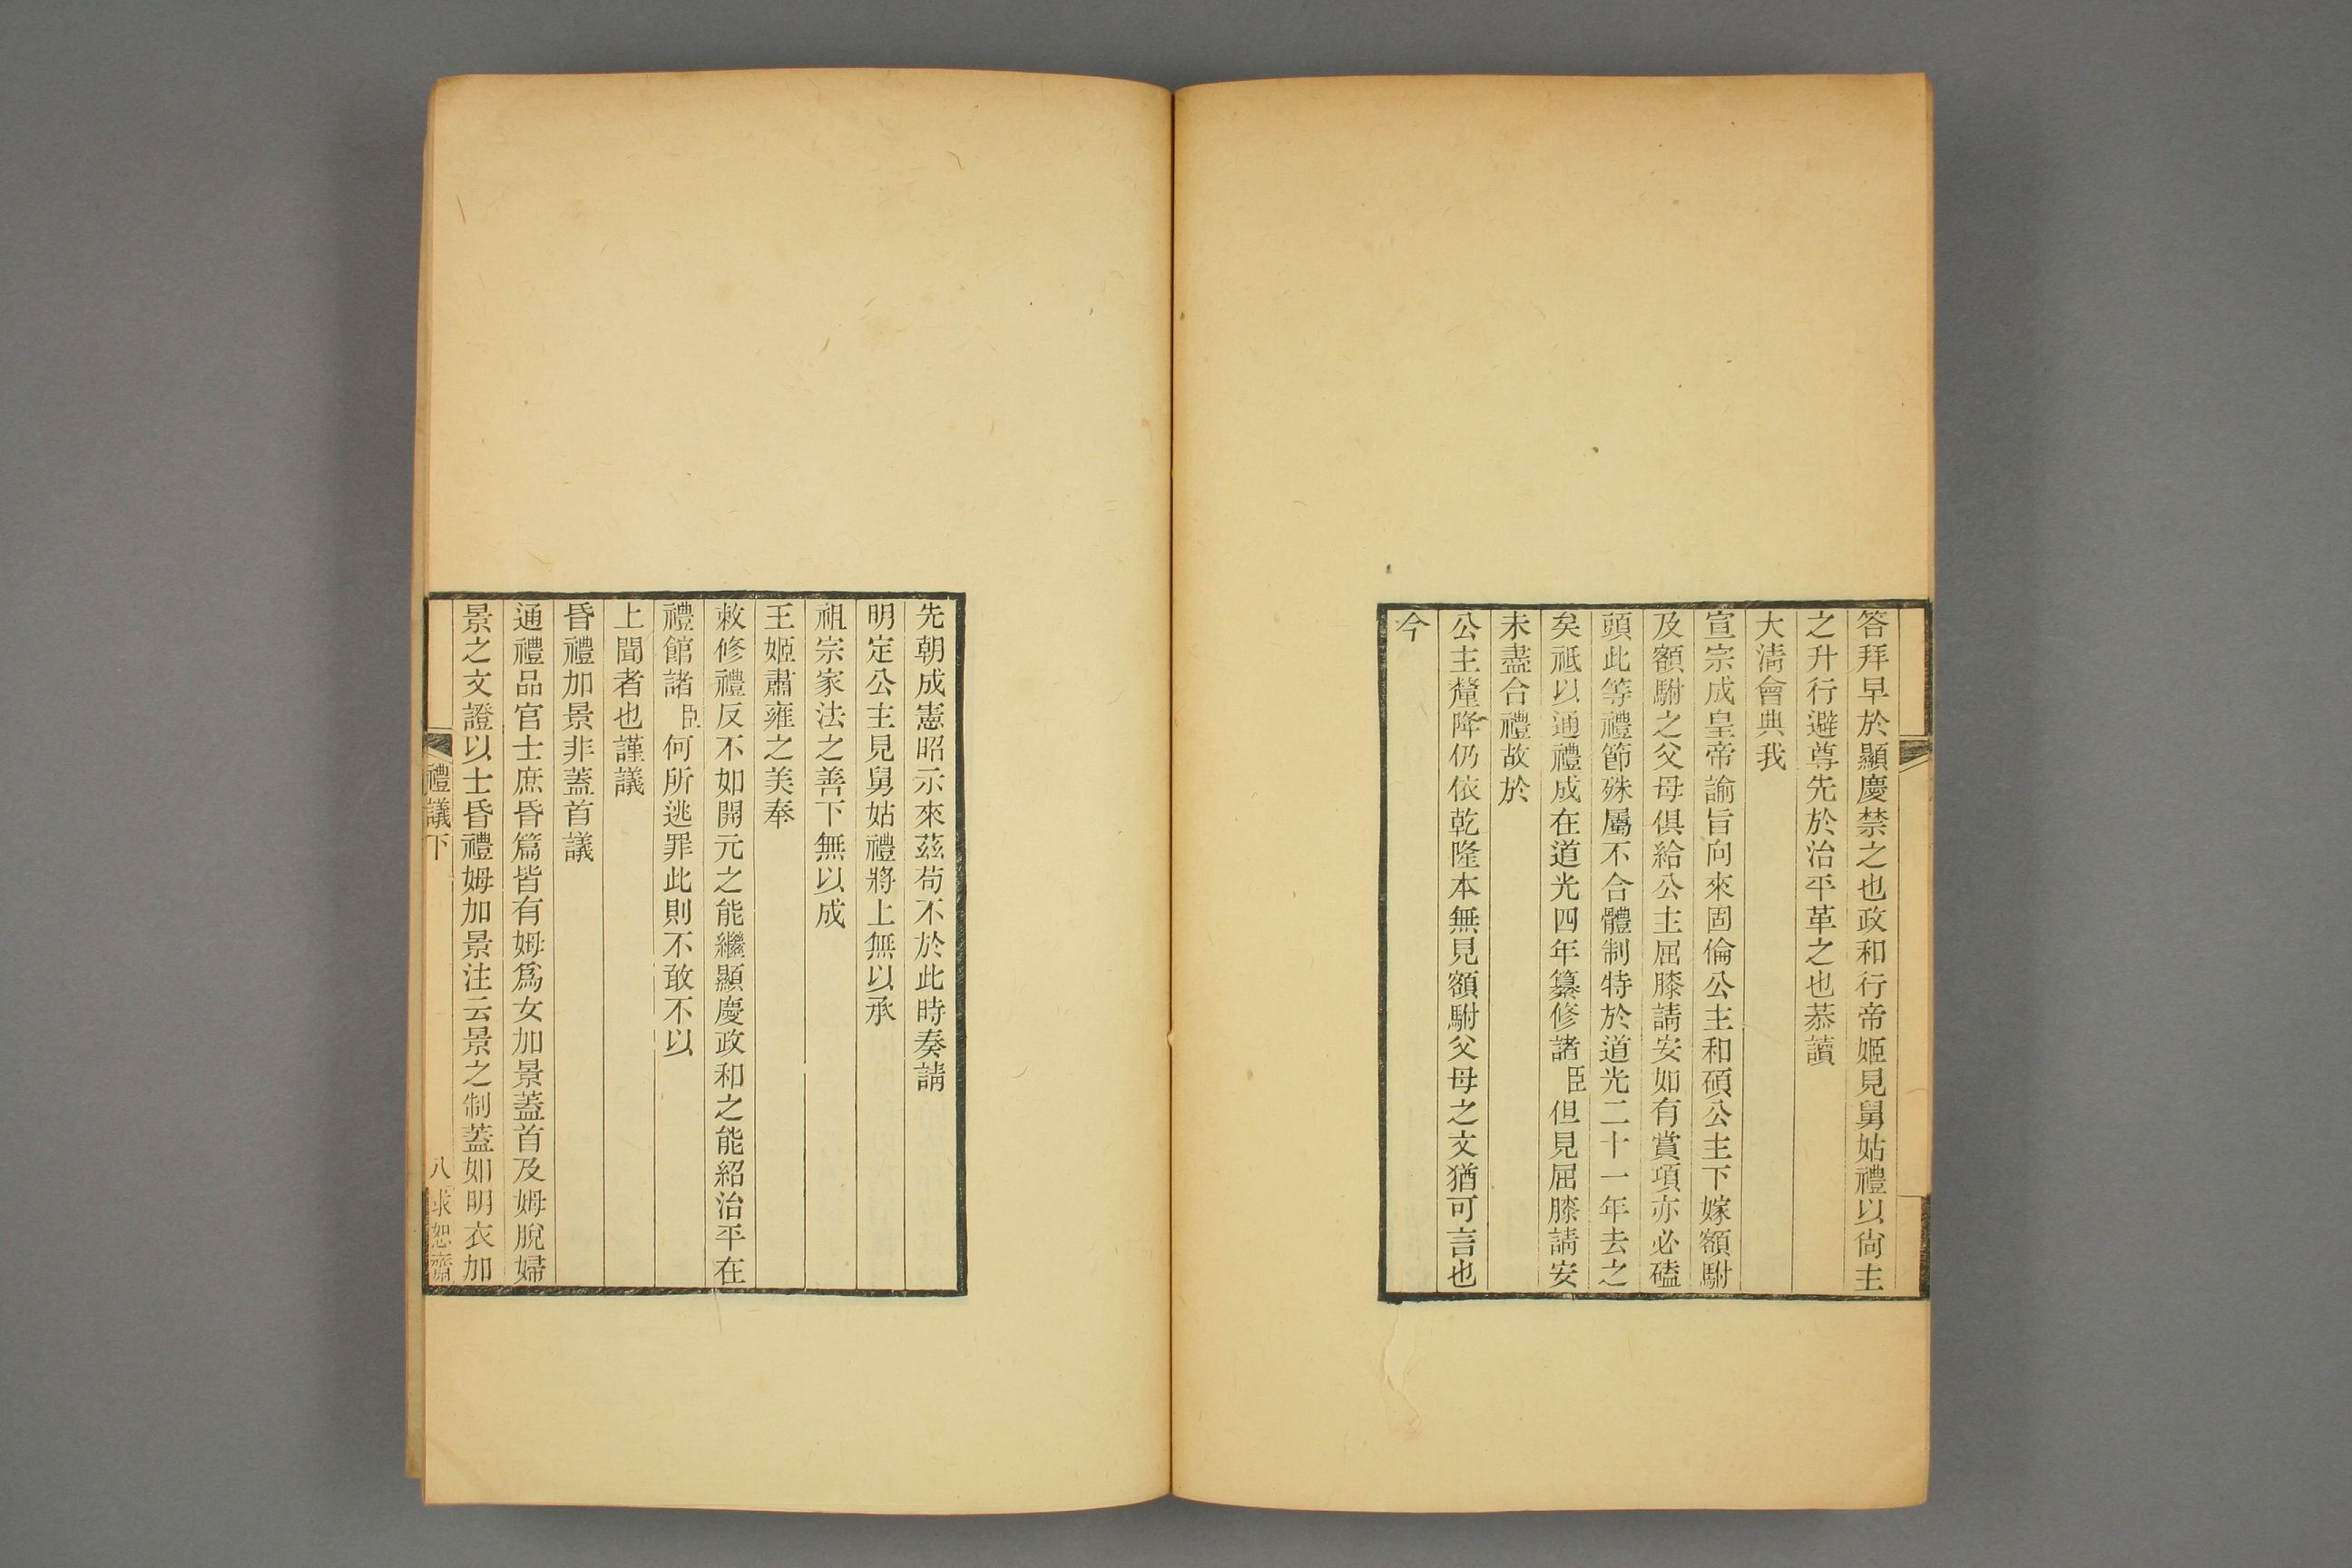 答拜早於顯慶禁之也政和行帝姬見舅姑禮以尙主
之升行避尊先於治平革之也恭讀
大淸會典我
宣宗成皇帝諭旨向來固倫公主和碩公主下嫁額駙
及額駙之父母俱給公主屈膝請安如有賞項亦必磕
頭此等禮節殊屬不合體制特於道光二十一年去之
矣祗以通禮成在道光四年纂修諸臣但見屈膝請安
未盡合禮故於
公主釐降仍依乾隆本無見額駙父母之文猶可言也
今
先朝成憲昭示來茲苟不於此時奏請
明定公主見舅姑禮將上無以承
祖宗家法之善下無以成
王姬肅雍之美奉
敕修禮反不如開元之能繼顯慶政和之能紹治平在
禮館諸臣何所逃罪此則不敢不以
上聞者也謹議
昏禮加景非蓋首議
通禮品官士庶昏篇皆有姆爲女加景蓋首及姆脫婦
景之文證以士昏禮姆加景注云景之制蓋如明衣加
禮議下 八 求恕齋